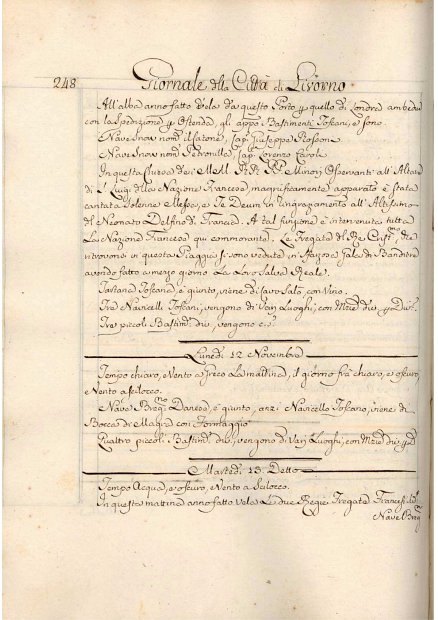 248 Giornale della Città di Livorno
All'alba anno fatto Vela da questo Porto p quello di Londra ambedue
con la Spedizione p Ostenda, gli appo: Bastimenti Toscani, e sono
Nave Snow nom: il Satone, Cap: Giuseppe
Nave Snow nom: Petronilla, Cap: Lorenzo
In questa Chiesa dei M.M. R.R. P.P. Minori Osservanti all'Altare
di S. Luigi della Nazione Francese, magnificamente apparato è stata
cantata Solenne Messa, e Te Deum in ringraziamento all'Altissimo
del Neonato Delfino di Francia. A tal funzione è intervenuta tutta
La Nazione Francese qui commorante. Le Fregate del Re Crist:mo, che
ritrovonsi in questa Piaggia si sono vedute in Stazo e Gala di Bandiera
avendo fatto a mezzo giorno La Loro Salva Reale.
Tartana Toscana, è giunta, viene di Cavo Salò, con Vino.
Tre Navicelli Toscani, vengono di Varj Luoghi, con Mzie div:
Tre piccoli Bastim:ti div:, vengono
Lunedì 12 Novembre
Tempo chiaro, e Vento a Greco La mattina, il giorno frà chiaro, e oscuro,
e Vento a Scilocco.
Nave Danese, è giunta, anzi Navicello Toscano, viene di
Bocca di Magra con Formaggio
Quattro piccoli Bastim:ti div:, vengono di Varj Luoghi, con Mzie div:
Martedì 13 Detto
Tempo Acqua, e oscuro, e Vento a Scilocco.
In questa mattina anno fatto Vela Le due Regie Fregate Francesi
Nave